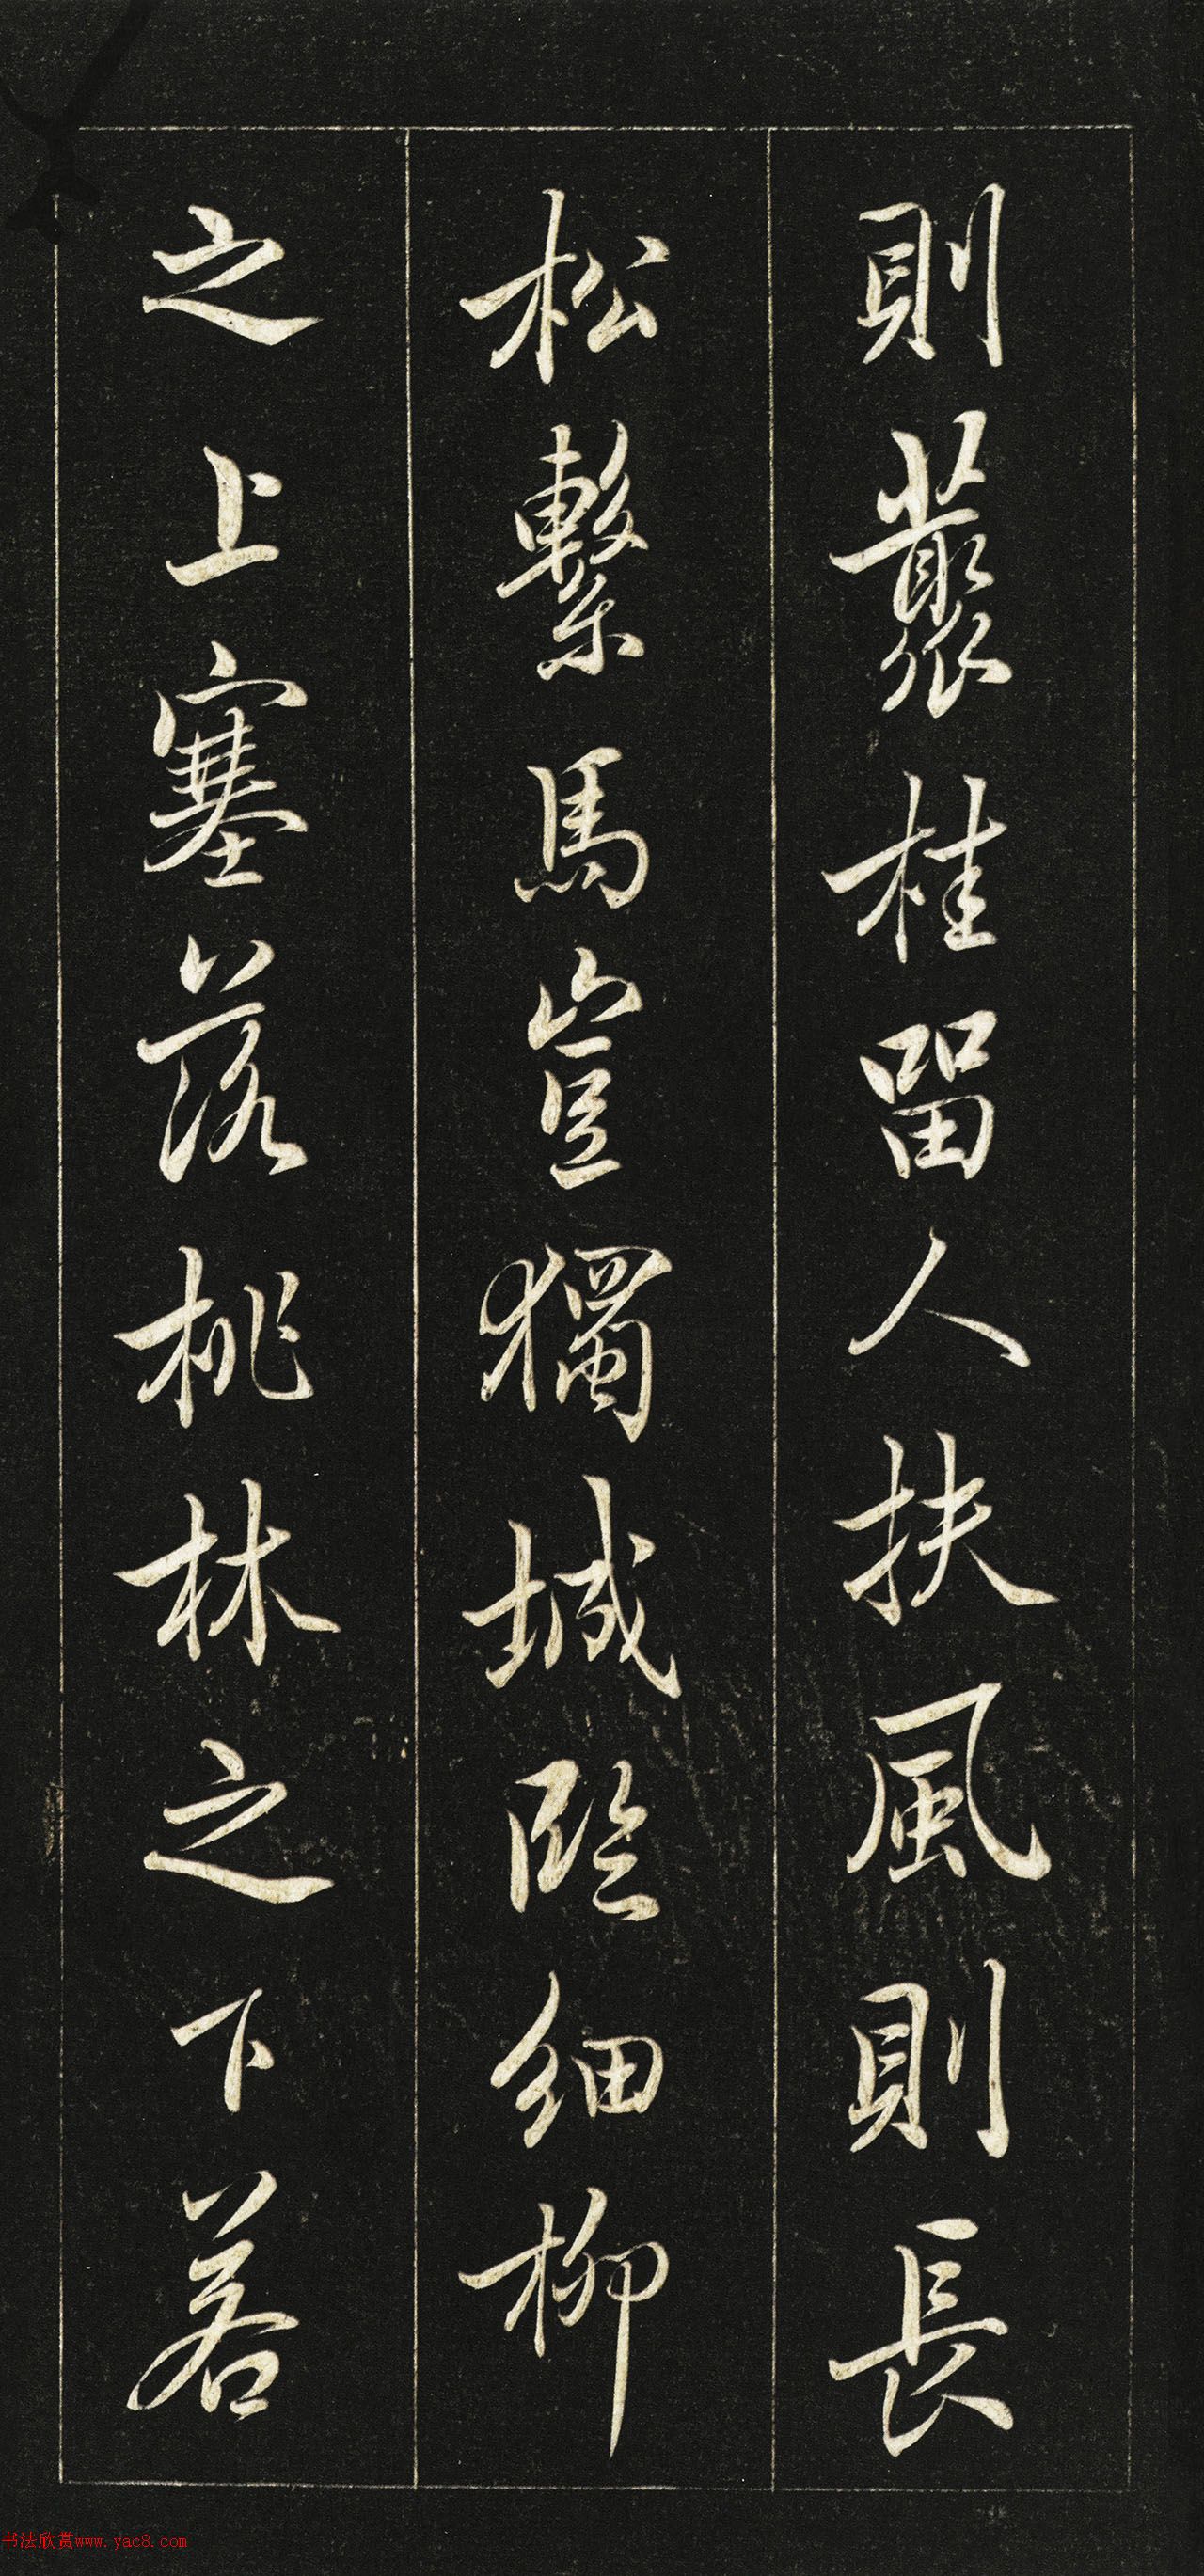 則叢桂留人扶風則長
松繫馬豈獨城臨細柳
之上塞落桃林之下若
书法欣赏www.yac8.com